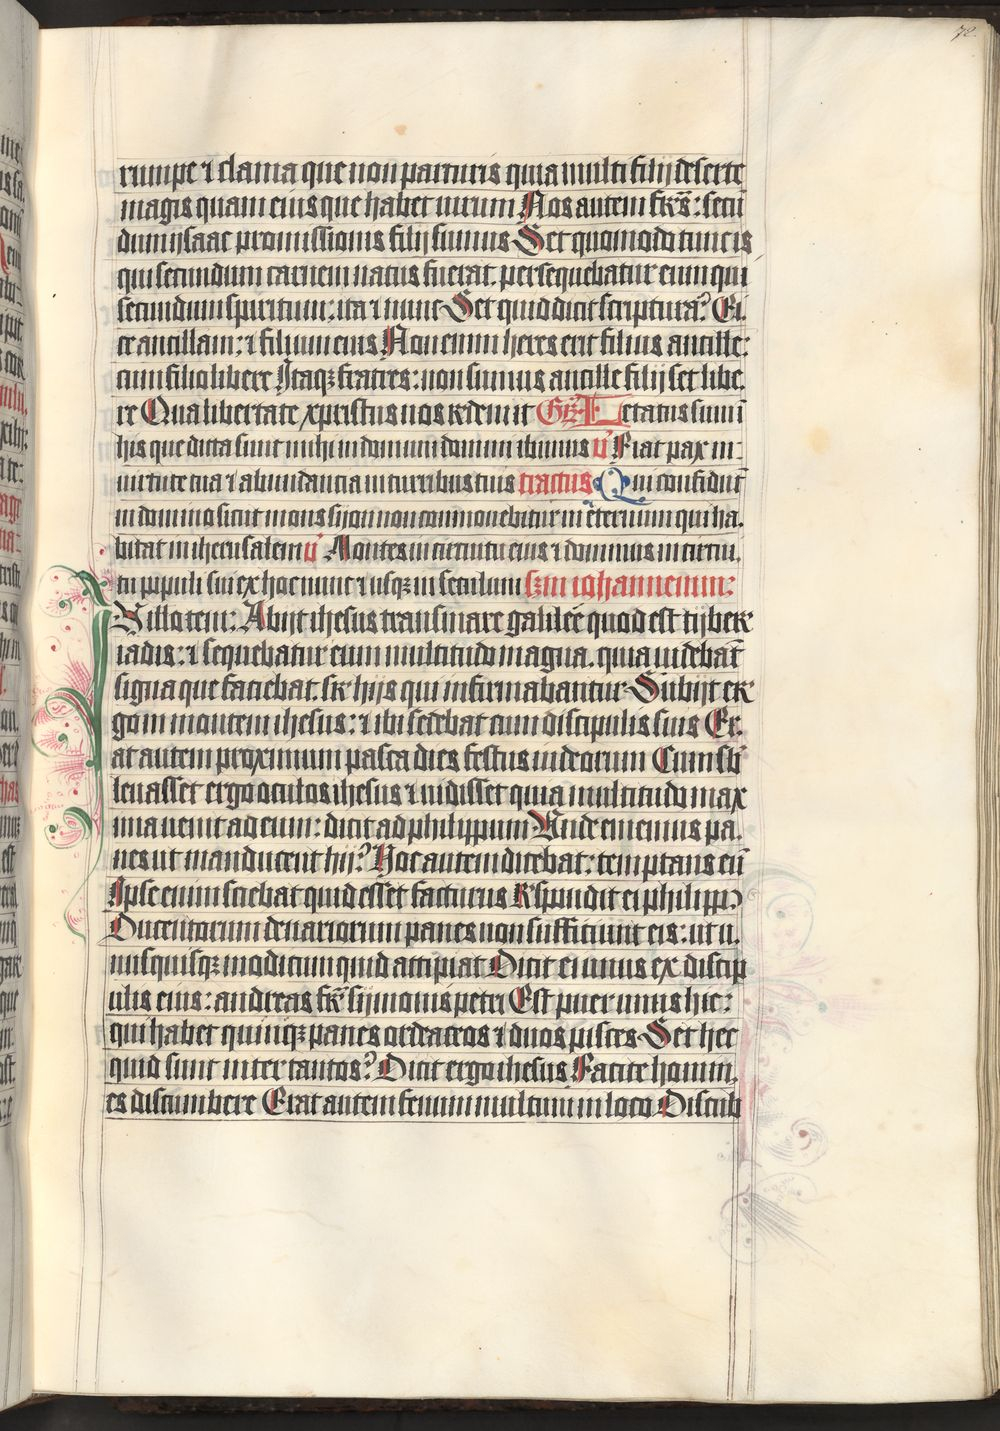 72
rumpe ⁊ clama que non parturis quia multi filij deserte
magis quam eius que habet uirum Nos autem frs̄: secū
dum ysaac promissionis filij sumus Set quomodo tunc is
qui secundum carnem natus fuerat persequebatur eum qui
secundum spiritum: ita ⁊ nunc Set quid dicit scriptura? Ei.
ce ancillam: ⁊ filium eius Non enim heres erit filius ancille:
cum filio libere Itaqꝫ fratres: non sumus ancille filij set libe.
re Qua libertate xpristus nos redemit Gr̄ L etatus sum ī
hijs que dicta sunt mihi in domum domini ibimus v̄ Fiat pax in
uirtute tua ⁊ abundancia in turribus tuis tractus Qui confidūt
in domino sicut mons syon non commouebitur in eternum qui ha.
bitat in iherusalem v̄ Montes in circuitu eius ⁊ dominus in circui.
tu populi sui ex hoc nunc ⁊ usqꝫ in seculum sꝫm iohannemm:
In illo tem: Abijt ihesus trans mare galilee quod est tyber
iadis: ⁊ sequebatur eum multitudo magna. quia uidebāt
signa que faciebat. sr hijs qui infirmabantur Subijt er
go in montem ihesus: ⁊ ibi sedebat cum discipulis suis Er.
at autem proximum pasca dies festus iudeorum Cum sb̄
leuasset ergo oculos ihesus ⁊ uidisset quia multitudo max
ima uenit ad eum: dicit ad philippum Unde ememus pa.
nes ut manducent hij? Hoc autem dicebat: temptans eū
Ipse enim sciebat quid esset facturus Rspondit ei philipp
Ducentorum denariorum panes non sufficiunt eis: ut u.
nusquisqꝫ modicum quid accipiat Dicit ei unus ex discip
ulis eius: andreas fr̄ symonis petri Est puer unus hic:
qui habet quinqꝫ panes ordeaceos ⁊ duos pisces Set hec
quid sunt inter tantos? Dicit ergo ihesus Facite homin.
es discumbere Erat autem fenum multum in loco Discub